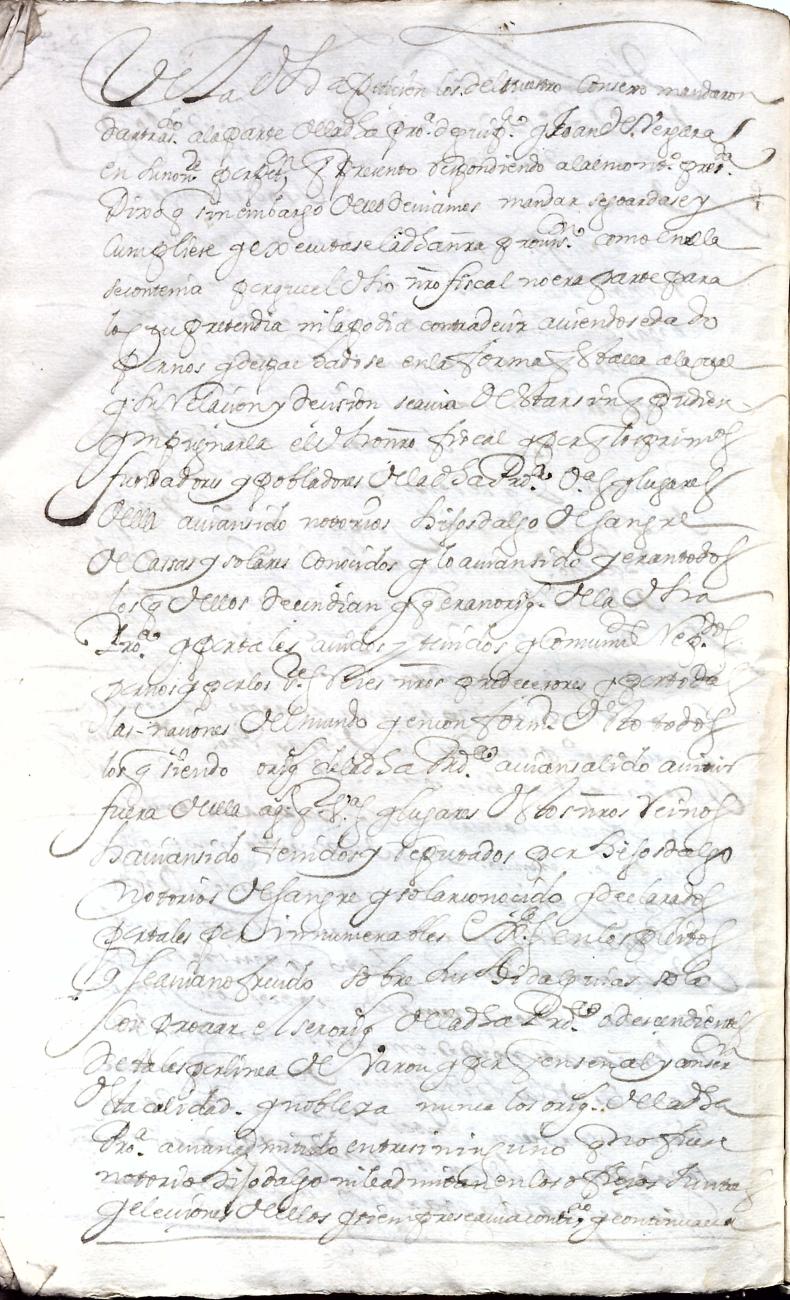 De la dha petiçion los del nuestro Consejo mandaron
dar trasdo. a la parte de la dha Pro.ª de guipz.ª y Joan de Vergara
en su nonre. por petn. q̃ presento Respondiendo a la presda.
Dixo q̃ sin embargo de ello deviamos mandar se goardase y
cumpliese y executase la dha nr̃a provisn. como en ella
se contenia porque el dho nr̃o fiscal no era parte para
lo q̃ pretendia ni la podia contradecir aviendose dado
por nos y despachadose en la forma q̃ estava a la qual
y su Relaçion y deçision se avia de estar sin q̃ pudiese
ympugnarla el dho nr̃o fiscal y por q̃ los primos
fundadores y pobladores de la dha Prd.ª Vªs y lugares
della avian sido notorios hijosdalgo de sangre
de Cassas y solares conocidos y lo avian sido y eran todos
los q̃ dellos decendian y q̃ eran orig.s de la dha
Pro.ª y por tales avidos y tenidos y comunmte Repdos
por nos y por los Rs Reies nr̃os predecesores y por todas
las naciones del mundo y en conformd. desto todos
los q̃ siendo orig.s de la dha Prd.ª avian salido a vivir
fuera della a q̃ Vªs y lugares destos nr̃os Reinos
havian sido tenidos y reputados por hijosdalgo
notorios de sangre y solar conocido y declarados
por tales por innumerables en los pleitos
q̃ se avian ofrecido sobre sus hidalguias solo
con provar el ser orig.s de la dha Prd.ª o descendientes
de tales por linea de Varon y por q̃ en señal y conseron
desta calidad y nobleza nunca los orig.s de la dha
Pro.ª avian admitido entre si ninguno q̃ no fuese
notorio hijodalgo ni le admitian en los ofiçios Juntas
y elecciones dellos y siempre se avia contdo y continuava